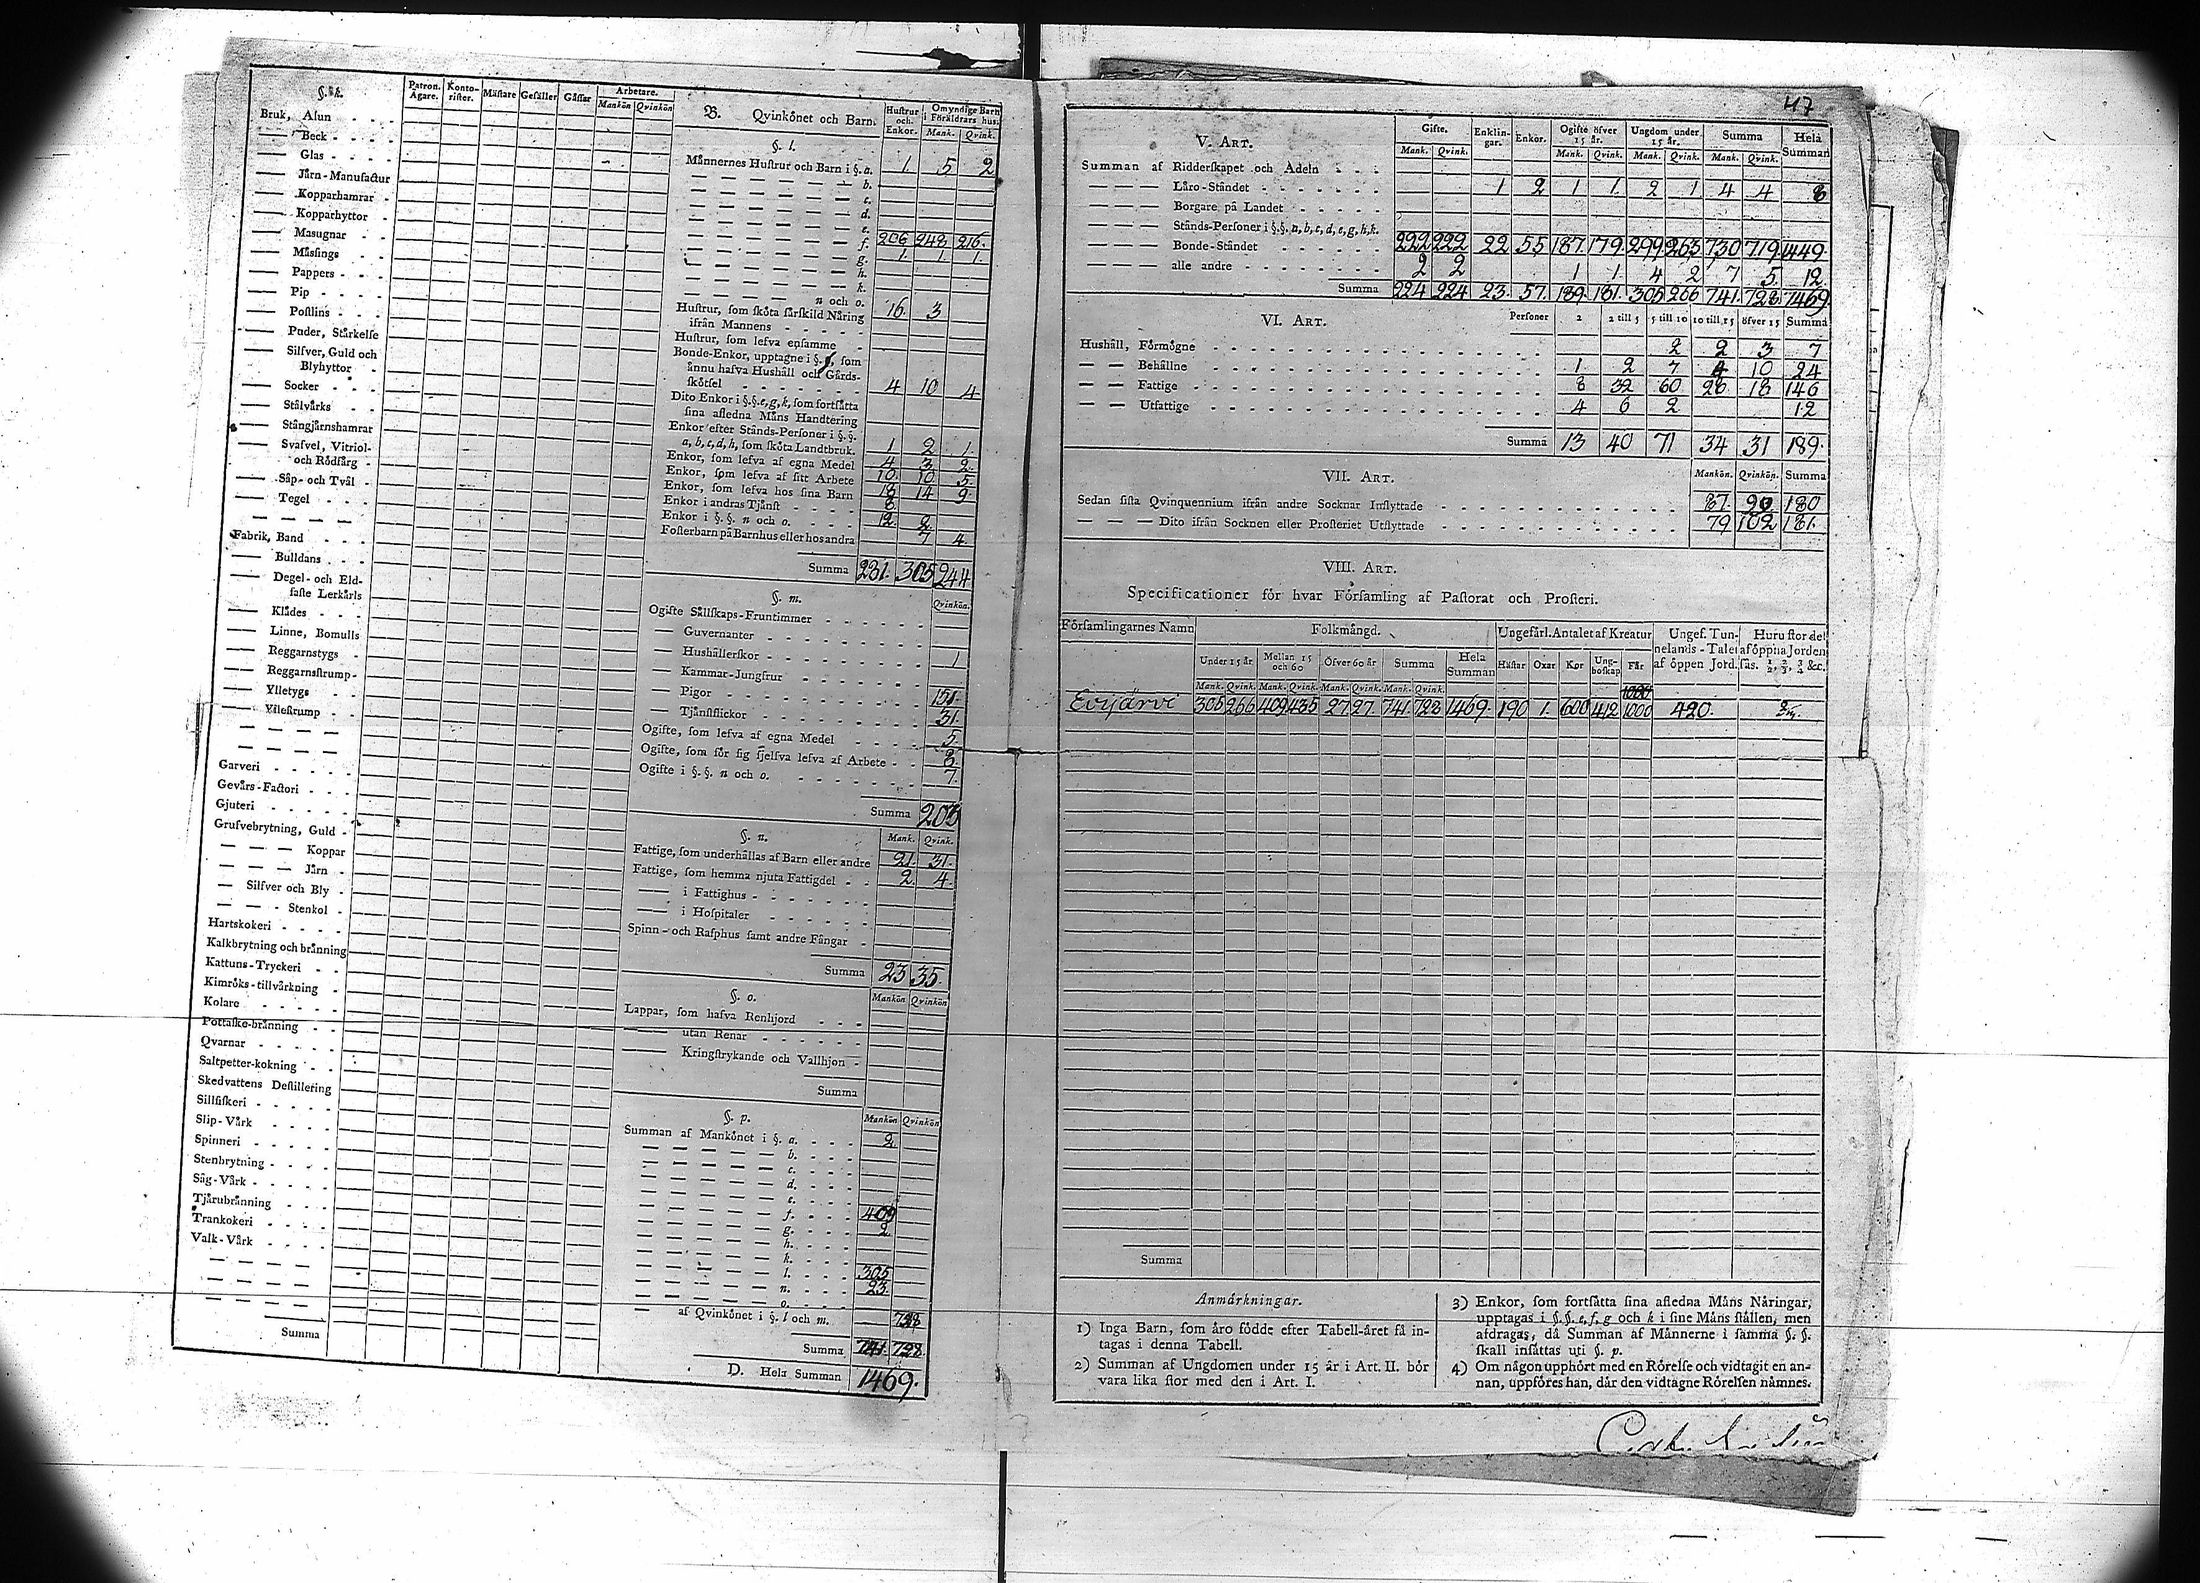 §. k. Patron. Ägare. Konto-rister. Mästare Gesäller Gåssar Arbetare. Mankön Qvinkön
Bruk, Alun
— Beck
— Glas
— Järn-Manufactur
— Kopparhamrar
— Kopparhyttor
— Masugnar
— Mässings
— Pappers
— Pip
— Postlins
— Puder, Stärkelse
— Silfver, Guld och
Blyhyttor
— Socker
— Stålvärks
— Stångjärnshamrar
— Svafvel, Vitriol-
och Rödfärg
— Såp- och Tvål
— Tegel
— — — —
Fabrik, Band
— Bulldans
— Degel- och Eld-
faste Lerkärls
— Klädes
— Linne, Bomulls
— Reggarnstygs
— Reggarnsstrump-
— Ylletygs
— Yllestrump
— — — —
— — — —
Garveri
Gevärs-Factori
Gjuteri
Grufvebrytning, Guld
— — — Koppar
— — — Järn
— Silfver och Bly
— — - Stenkol
Hartskokeri
Kalkbrytning och bränning
Kattuns-Tryckeri
Kimröks-tillvärkning
Kolare
Pottaske-bränning
Qvarnar
Saltpetter-kokning
Skedvattens Destillering
Sillfiskeri
Slip-Värk
Spinneri
Stenbrytning
Såg-Värk
Tjärubränning
Trankokeri
Valk-Värk
— — — —
— — — —
— — — —
Summa
B. Qvinkönet och Barn. Hustrur och Enkor. Omyndige Barn i Föräldrars hus. Mank. Qvink.
§. l.
Männernes Hustrur och Barn i §. a. 1. 5 2
— — — — — b.
— — — — — c.
— — — — — d.
— — — — — e.
— — — — — f. 206 248 216.
— — — — — g. 1. 1. 1.
— — — — — h.
— — — — — k.
— — — — — n och o. 16. 3
Hustrur, som sköta särskild Näring
ifrån Mannens
Hustrur, som lefva ensamme
Bonde-Enkor, upptagne i §. f, som
ännu hafva Hushåll och Gårds-
skötsel 4 10 4
Dito Enkor i §.§. e, g, k, som fortsätta
sina afledna Mäns Handtering
Enkor efter Stånds-Personer i §.§.
a, b, c, d, h, som sköta Landtbruk. 1 2 1.
Enkor, som lefva af egna Medel 4 3 2.
Enkor, som lefva af sitt Arbete 10. 10. 5
Enkor, som lefva hos sina Barn 18 14 9.
Enkor i andras Tjänst 8.
Enkor i §. §. n och o. 12. 2
Fosterbarn på Barnhus eller hos andra 7 4.
Summa 281. 305 244
§. m. Qvinkön.
Ogifte Sällskaps-Fruntimmer
— Guvernanter
— Hushållerskor 1
— Kammar-Jungfrur
— Pigor 151.
— Tjänstflickor 31.
Ogifte, som lefva af egna Medel 5
Ogifte, som för sig sjelfva lefva af Arbete 8.
Ogifte i §. §. n och o. 7.
Summa 203
§. n. Mank. Qvink.
Fattige, som underhållas af Barn eller andre 21. 31.
Fattige, som hemma njuta Fattigdel 2. 4.
— i Fattighus
— i Hospitaler
Spinn- och Rasphus samt andre Fångar
Summa 23 35.
§. o. Mankön Qvinkön
Lappar, som hafva Renhjord
— utan Renar
— Kringstrykande och Vallhjon
Summa
§. p. Mankön Qvinkön
Summan af Mankönet i §. a. 2
— — — — — b.
— — — — — c.
— — — — — d.
— — — — — e.
— — — — — f. 409
— — — — — g. 2
— — — — — h.
— — — — — k.
— — — — — l. 305
— — — — — n. 23
— — — — — o.
— af Qvinkönet i §. l och m. 728
Summa 741 728.
D. Hela Summan 1469.
47
V. ART. Gifte. Mank. Qvink. Enklin-gar. Enkor. Ogifte öfver 15 år. Mank. Qvink. Ungdom under 15 år. Mank. Qvink. Summa Mank. Qvink. Hela Summan
Summan af Ridderskapet och Adeln
— — — Läro-Ståndet 1 2 1 1. 2 1 4 4 8
— — — Borgare på Landet
— — — Stånds-Personer i §.§. a, b, c, d, e, g, h, k.
— — — Bonde-Ståndet 222 222 22 55 187. 179. 299 263 730 719. 1449.
— — — alle andre 2 2 1 1. 4 2 7 5. 12.
Summa 224 224 23. 57. 189. 181. 305 266 741. 728. 1469.
VI. ART. Personer 2 2 till 5 5 till 10 10 till 15 öfver 15 Summa
Hushåll, Förmögne 2 2 3 7
— — Behållne 1 2 7 4 10 24
— — Fattige 8 32 60 28 18 146
— — Utfattige 4 6 2 12
Summa 13 40 71 34 31 189.
VII. ART. Mankön. Qvinkön. Summa
Sedan sista Qvinquennium ifrån andre Socknar Inflyttade 87. 180
— — — Dito ifrån Socknen eller Prosteriet Utflyttade 79 102 181.
VIII. ART.
Specificationer för hvar Församling af Pastorat och Prosteri.
Församlingarnes Namn Folkmängd. Ungefärl. Antalet af Kreatur Ungef. Tun-nelands-Talet af öppen Jord. Huru stor del af öppna Jorden sås. ½, ⅔, ¾ &c.
Under 15 år Mellan 15 och 60 Öfver 60 år Summa Hela Summan Hästar Oxar Kor Ung-boskap Får
Mank. Qvink. Mank. Qvink. Mank. Qvink. Mank. Qvink. 1000
Evijärvi 305 266 409 435 27 27. 741. 728 1469. 190 1. 600 412 1000 420.
Summa
Anmärkningar.
1) Inga Barn, som äro födde efter Tabell-året få in-
tagas i denna Tabell.
2) Summan af Ungdomen under 15 år i Art. II. bör
vara lika stor med den i Art. I.
3) Enkor, som fortsätta sina afledna Mäns Näringar,
upptagas i §.§. e, f, g och k i sine Mäns ställen, men
afdragas, då Summan af Männerne i samma §. §.
skall insättas uti §. p.
4) Om någon upphört med en Rörelse och vidtagit en an-
nan, uppföres han, där den vidtagne Rörelsen nämnes.